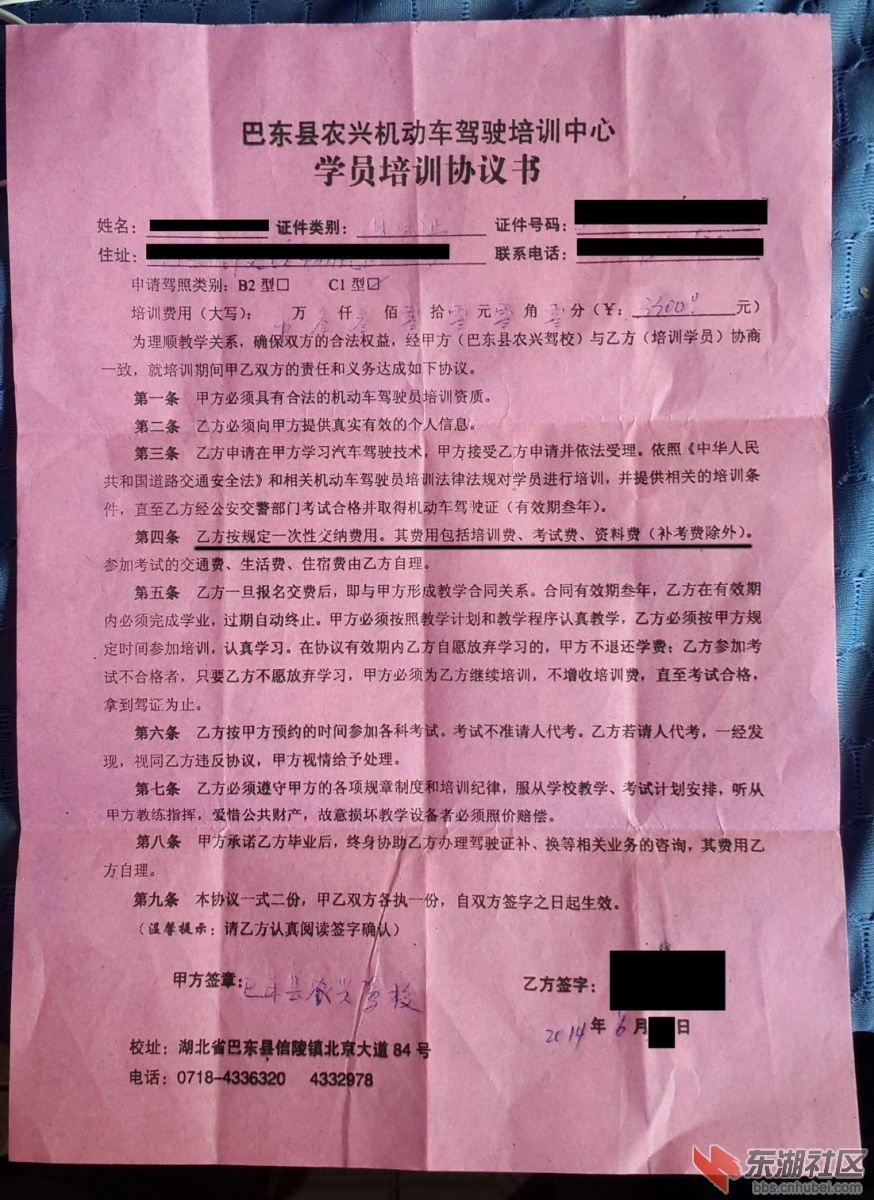 巴东县农兴机动车驾驶培训中心
学员培训协议书
姓名: 证件类别: 证件号码:
住址: 联系电话:
申请驾照类别: B2 型□ C1 型☑
培训费用（大写）: 万 仟 佰 拾 元 角 分（¥: 3300 元）
为理顺教学关系，确保双方的合法权益，经甲方（巴东县农兴驾校）与乙方（培训学员）协商
一致，就培训期间甲乙双方的责任和义务达成如下协议。
第一条 甲方必须具有合法的机动车驾驶员培训资质。
第二条 乙方必须向甲方提供真实有效的个人信息。
第三条 乙方申请在甲方学习汽车驾驶技术，甲方接受乙方申请并依法受理。依照《中华人民
共和国道路交通安全法》和相关机动车驾驶员培训法律法规对学员进行培训，并提供相关的培训条
件，直至乙方经公安交警部门考试合格并取得机动车驾驶证（有效期叁年）。
第四条 乙方按规定一次性交纳费用。其费用包括培训费、考试费、资料费（补考费除外）。
参加考试的交通费、生活费、住宿费由乙方自理。
第五条 乙方一旦报名交费后，即与甲方形成教学合同关系。合同有效期叁年，乙方在有效期
内必须完成学业，过期自动终止。甲方必须按照教学计划和教学程序认真教学，乙方必须按甲方规
定时间参加培训，认真学习。在协议有效期内乙方自愿放弃学习的，甲方不退还学费；乙方参加考
试不合格者，只要乙方不愿放弃学习，甲方必须为乙方继续培训，不增收培训费，直至考试合格，
拿到驾证为止。
第六条 乙方按甲方预约的时间参加各科考试。考试不准请人代考。乙方若请人代考，一经发
现，视同乙方违反协议，甲方视情给予处理。
第七条 乙方必须遵守甲方的各项规章制度和培训纪律，服从学校教学、考试计划安排，听从
甲方教练指挥，爱惜公共财产，故意损坏教学设备者必须照价赔偿。
第八条 甲方承诺乙方毕业后，终身协助乙方办理驾驶证补、换等相关业务的咨询，其费用乙
方自理。
第九条 本协议一式二份，甲乙双方各执一份，自双方签字之日起生效。
（温馨提示：请乙方认真阅读签字确认）
甲方签章: 巴东县农兴驾校 乙方签字:
2014 年 6 月 日
校址: 湖北省巴东县信陵镇北京大道 84 号
电话: 0718-4336320 4332978
东湖社区
bbs.cnhubei.com